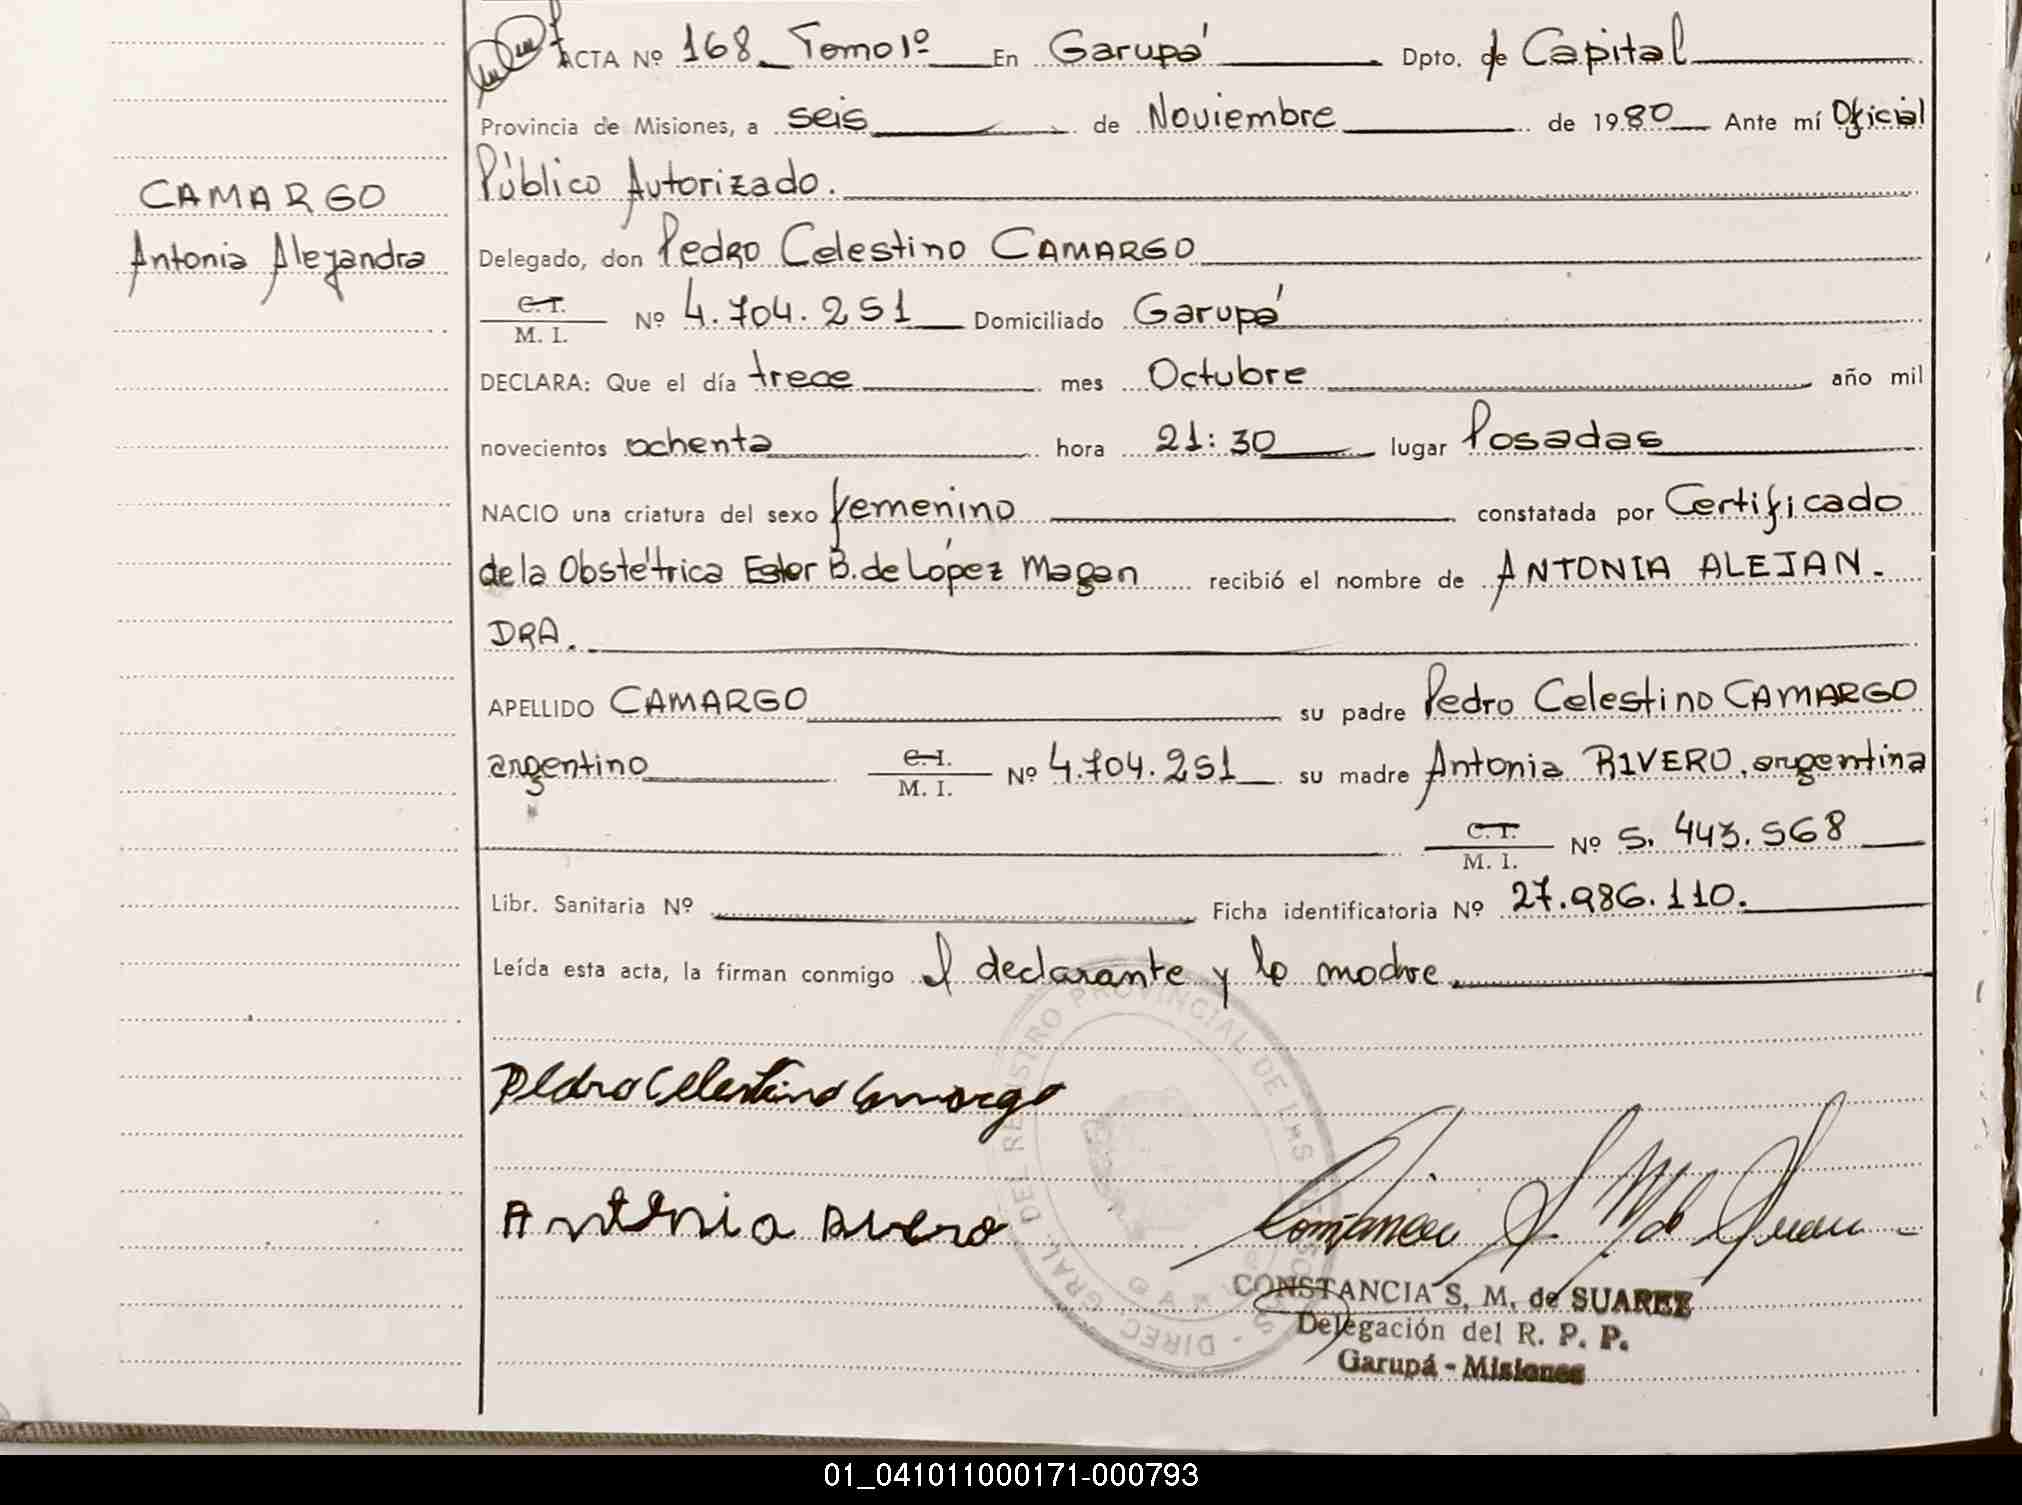 ACTA Nº 168 Tomo 1º En Garupá Dpto. de Capital
Provincia de Misiones, a seis de Noviembre de 1980 Ante mí Oficial
Público Autorizado.
CAMARGO
Antonia Alejandra
Delegado, don Pedro Celestino CAMARGO
C.I.
M. I. Nº 4.704.251 Domiciliado Garupá
DECLARA: Que el día trece mes Octubre año mil
novecientos ochenta hora 21:30 lugar Posadas
NACIO una criatura del sexo femenino constatada por Certificado
de la Obstétrica Ester B. de López Magan recibió el nombre de ANTONIA ALEJAN-
DRA.
APELLIDO CAMARGO su padre Pedro Celestino CAMARGO
argentino C.I.
M. I. Nº 4.704.251 su madre Antonia RIVERO, argentina
C.I.
M. I. Nº 5.443.568
Libr. Sanitaria Nº Ficha identificatoria Nº 27.986.110.
Leída esta acta, la firman conmigo el declarante y la madre.
Pedro Celestino Camargo
Antonia Rivero
DIREC. GRAL. DEL REGISTRO PROVINCIAL DE LAS PERSONAS
GARUPA
CONSTANCIA S. M. de SUAREZ
Delegación del R. P. P.
Garupá - Misiones
01_041011000171-000793